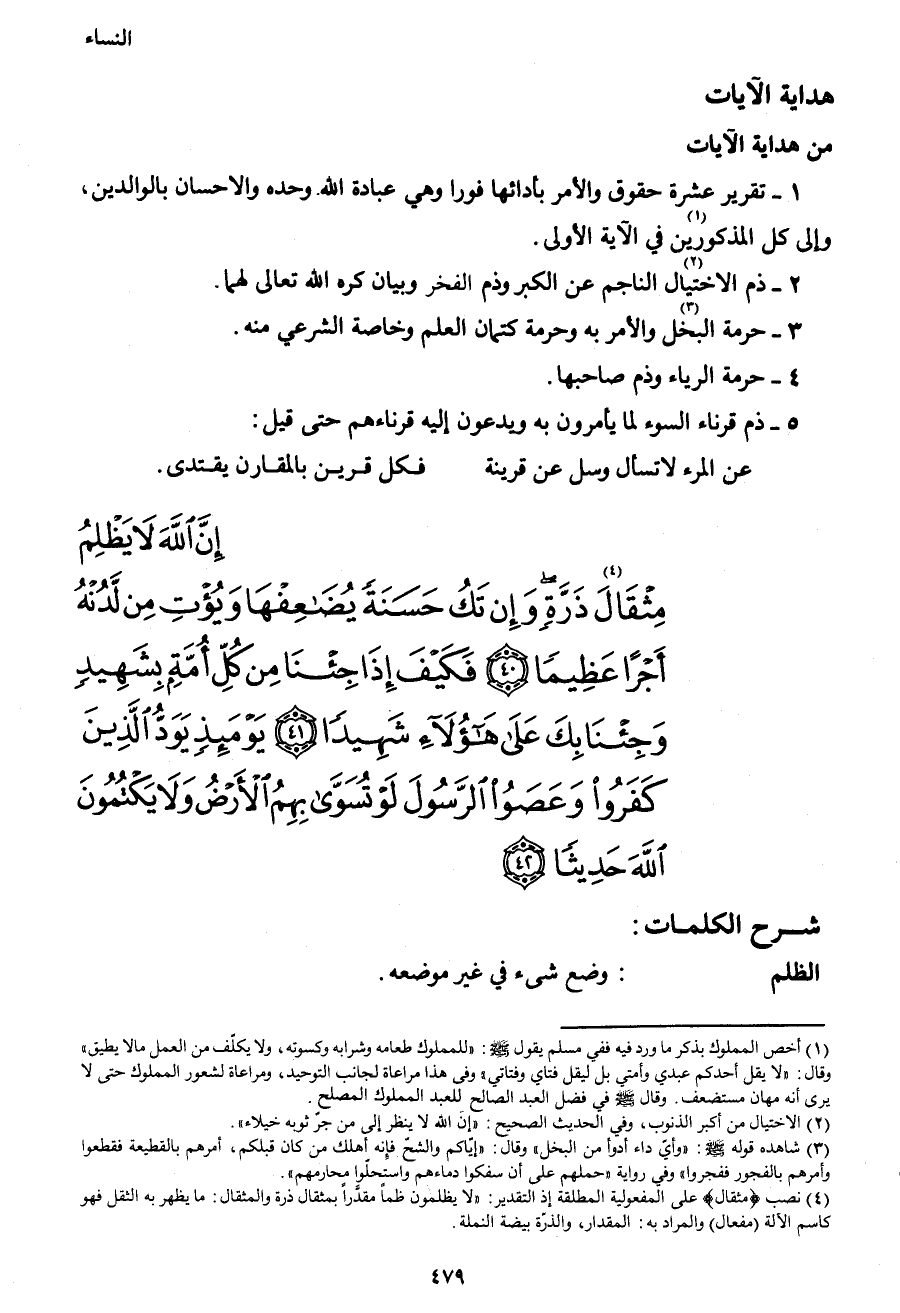 النساء
هداية الآيات
من هداية الآيات
١ ـ تقرير عشرة حقوق والأمر بأدائها فورا وهي عبادة الله وحده والاحسان بالوالدين،
وإلى كل المذكورين(١) في الآية الأولى.
٢ ـ ذم الاختيال(٢) الناجم عن الكبر وذم الفخر وبيان كره الله تعالى لهما.
٣ ـ حرمة البخل(٣) والأمر به وحرمة كتمان العلم وخاصة الشرعي منه.
٤ ـ حرمة الرياء وذم صاحبها.
٥ ـ ذم قرناء السوء لما يأمرون به ويدعون إليه قرناءهم حتى قيل:
عن المرء لاتسأل وسل عن قرينة فكل قرين بالمقارن يقتدى.
إِنَّ ٱللَّهَ لَا يَظْلِمُ
مِثْقَالَ(٤) ذَرَّةٍۖ وَإِن تَكُ حَسَنَةً يُضَٰعِفْهَا وَيُؤْتِ مِن لَّدُنْهُ
أَجْرًا عَظِيمًا ٤٠ فَكَيْفَ إِذَا جِئْنَا مِن كُلِّ أُمَّةٍۭ بِشَهِيدٍ
وَجِئْنَا بِكَ عَلَىٰ هَٰٓؤُلَآءِ شَهِيدًا ٤١ يَوْمَئِذٍ يَوَدُّ ٱلَّذِينَ
كَفَرُوا۟ وَعَصَوُا۟ ٱلرَّسُولَ لَوْ تُسَوَّىٰ بِهِمُ ٱلْأَرْضُ وَلَا يَكْتُمُونَ
ٱللَّهَ حَدِيثًا ٤٢
شرح الكلمات:
الظلم : وضع شىء في غير موضعه.
(١) أخص المملوك بذكر ما ورد فيه ففي مسلم يقول ﷺ: «للمملوك طعامه وشرابه وكسوته، ولا يكلّف من العمل مالا يطيق»
وقال: «لا يقل أحدكم عبدي وأمتي بل ليقل فتاي وفتاتي» وفى هذا مراعاة لجانب التوحيد، ومراعاة لشعور المملوك حتى لا
يرى أنه مهان مستضعف. وقال ﷺ في فضل العبد الصالح للعبد المملوك المصلح.
(٢) الاختيال من أكبر الذنوب، وفي الحديث الصحيح: «إنّ الله لا ينظر إلى من جرّ ثوبه خيلاء».
(٣) شاهده قوله ﷺ: «وأيّ داء أدوأ من البخل» وقال: «إيّاكم والشحّ فإنه أهلك من كان قبلكم، أمرهم بالقطيعة فقطعوا
وأمرهم بالفجور ففجروا» وفي رواية «حملهم على أن سفكوا دماءهم واستحلّوا محارمهم».
(٤) نصب ﴿مثقال﴾ على المفعولية المطلقة إذ التقدير: «لا يظلمون ظماً مقدّراً بمثقال ذرة والمثقال: ما يظهر به الثقل فهو
كاسم الآلة (مفعال) والمراد به: المقدار، والذرّة بيضة النملة.
٤٧٩